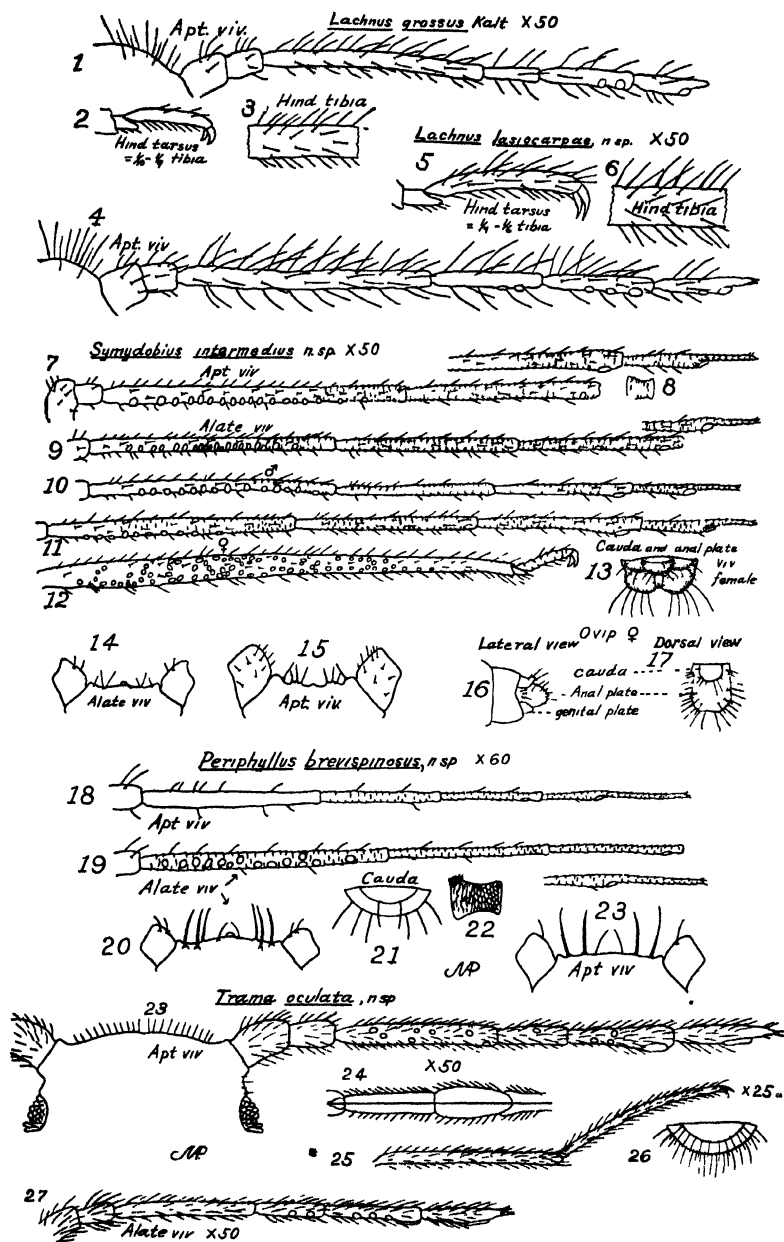 Lachnus grossus Kalt X50
Apt. viv.
1
2
Hind tarsus
3
Hind tibia
Lachnus lasiocarpae, n sp. X50
5
Hind tarsus
= ¼ - ⅙ tibia
6
Hind tibia
4
Apt. viv
Symydobius intermedius n sp. X50
7
Apt viv
8
9
Alate viv
10
♂
11
♀
12
13
Cauda and anal plate
viv
female
14
Alate viv
15
Apt viv.
Lateral view Ovip ♀ Dorsal view
16
17
cauda
Anal plate
genital plate
Periphyllus brevispinosus, n sp X60
18
Apt viv
19
Alate viv
20
Cauda
21
22
23
Apt viv
Trama oculata, n sp
23
Apt viv
X50
24
25
X25
26
27
Alate viv X50